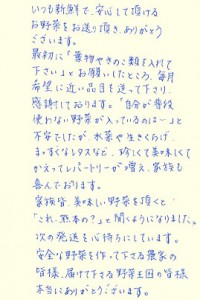 いつも新鮮で、安心して頂ける
お野菜をお送り頂き、ありがとう
ございます。
最初に「葉物やきのこ類を入れて
下さい」とお願いしたところ、毎月
希望に近い品目を送って下さり、
感謝しております。「自分が普段
使わない野菜が入っているのは…」と
不安でしたが、水菜や生きくらげ、
まっすぐなレタスなど、珍しくて美味しくて
かえってレパートリーが増え、家族も
喜んでおります。
家族皆、美味しい野菜を頂くと
「これ、熊本の?」と聞くようになりました。
次の発送を心待ちにしています。
安全な野菜を作って下さる農家の
皆様、届けて下さる野菜王国の皆様
本当にありがとうございます。